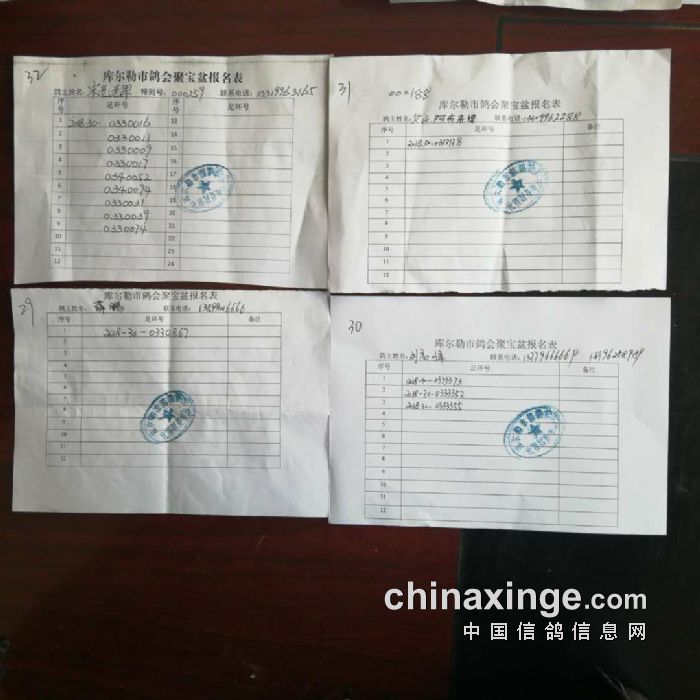 32
库尔勒市鸽会聚宝盆报名表
鸽主姓名: 棚别号: 000259 联系电话:
序号 足环号 序号 足环号
1 2018-30-0330016 13
2 0330011 14
3 0330009 15
4 0330017 16
5 0340052 17
6 0340094 18
7 0330031 19
8 0330039 20
9 0330074 21
10 22
11 23
12 24
31
000188
库尔勒市鸽会聚宝盆报名表
鸽主姓名: 联系电话:
序号 足环号 备注
1
2
3
4
5
6
7
8
9
10
11
12
29
库尔勒市鸽会聚宝盆报名表
鸽主姓名: 薛鹏 联系电话:
序号 足环号 备注
1 2018-30-0330867
2
3
4
5
6
7
8
9
10
11
12
30
库尔勒市鸽会聚宝盆报名表
鸽主姓名: 联系电话:
序号 足环号 备注
1 2018-30-0339373
2 2018-30-0333352
3 2018-30-0333355
4
5
6
7
8
9
10
11
12
chinaxinge.com
中国信鸽信息网